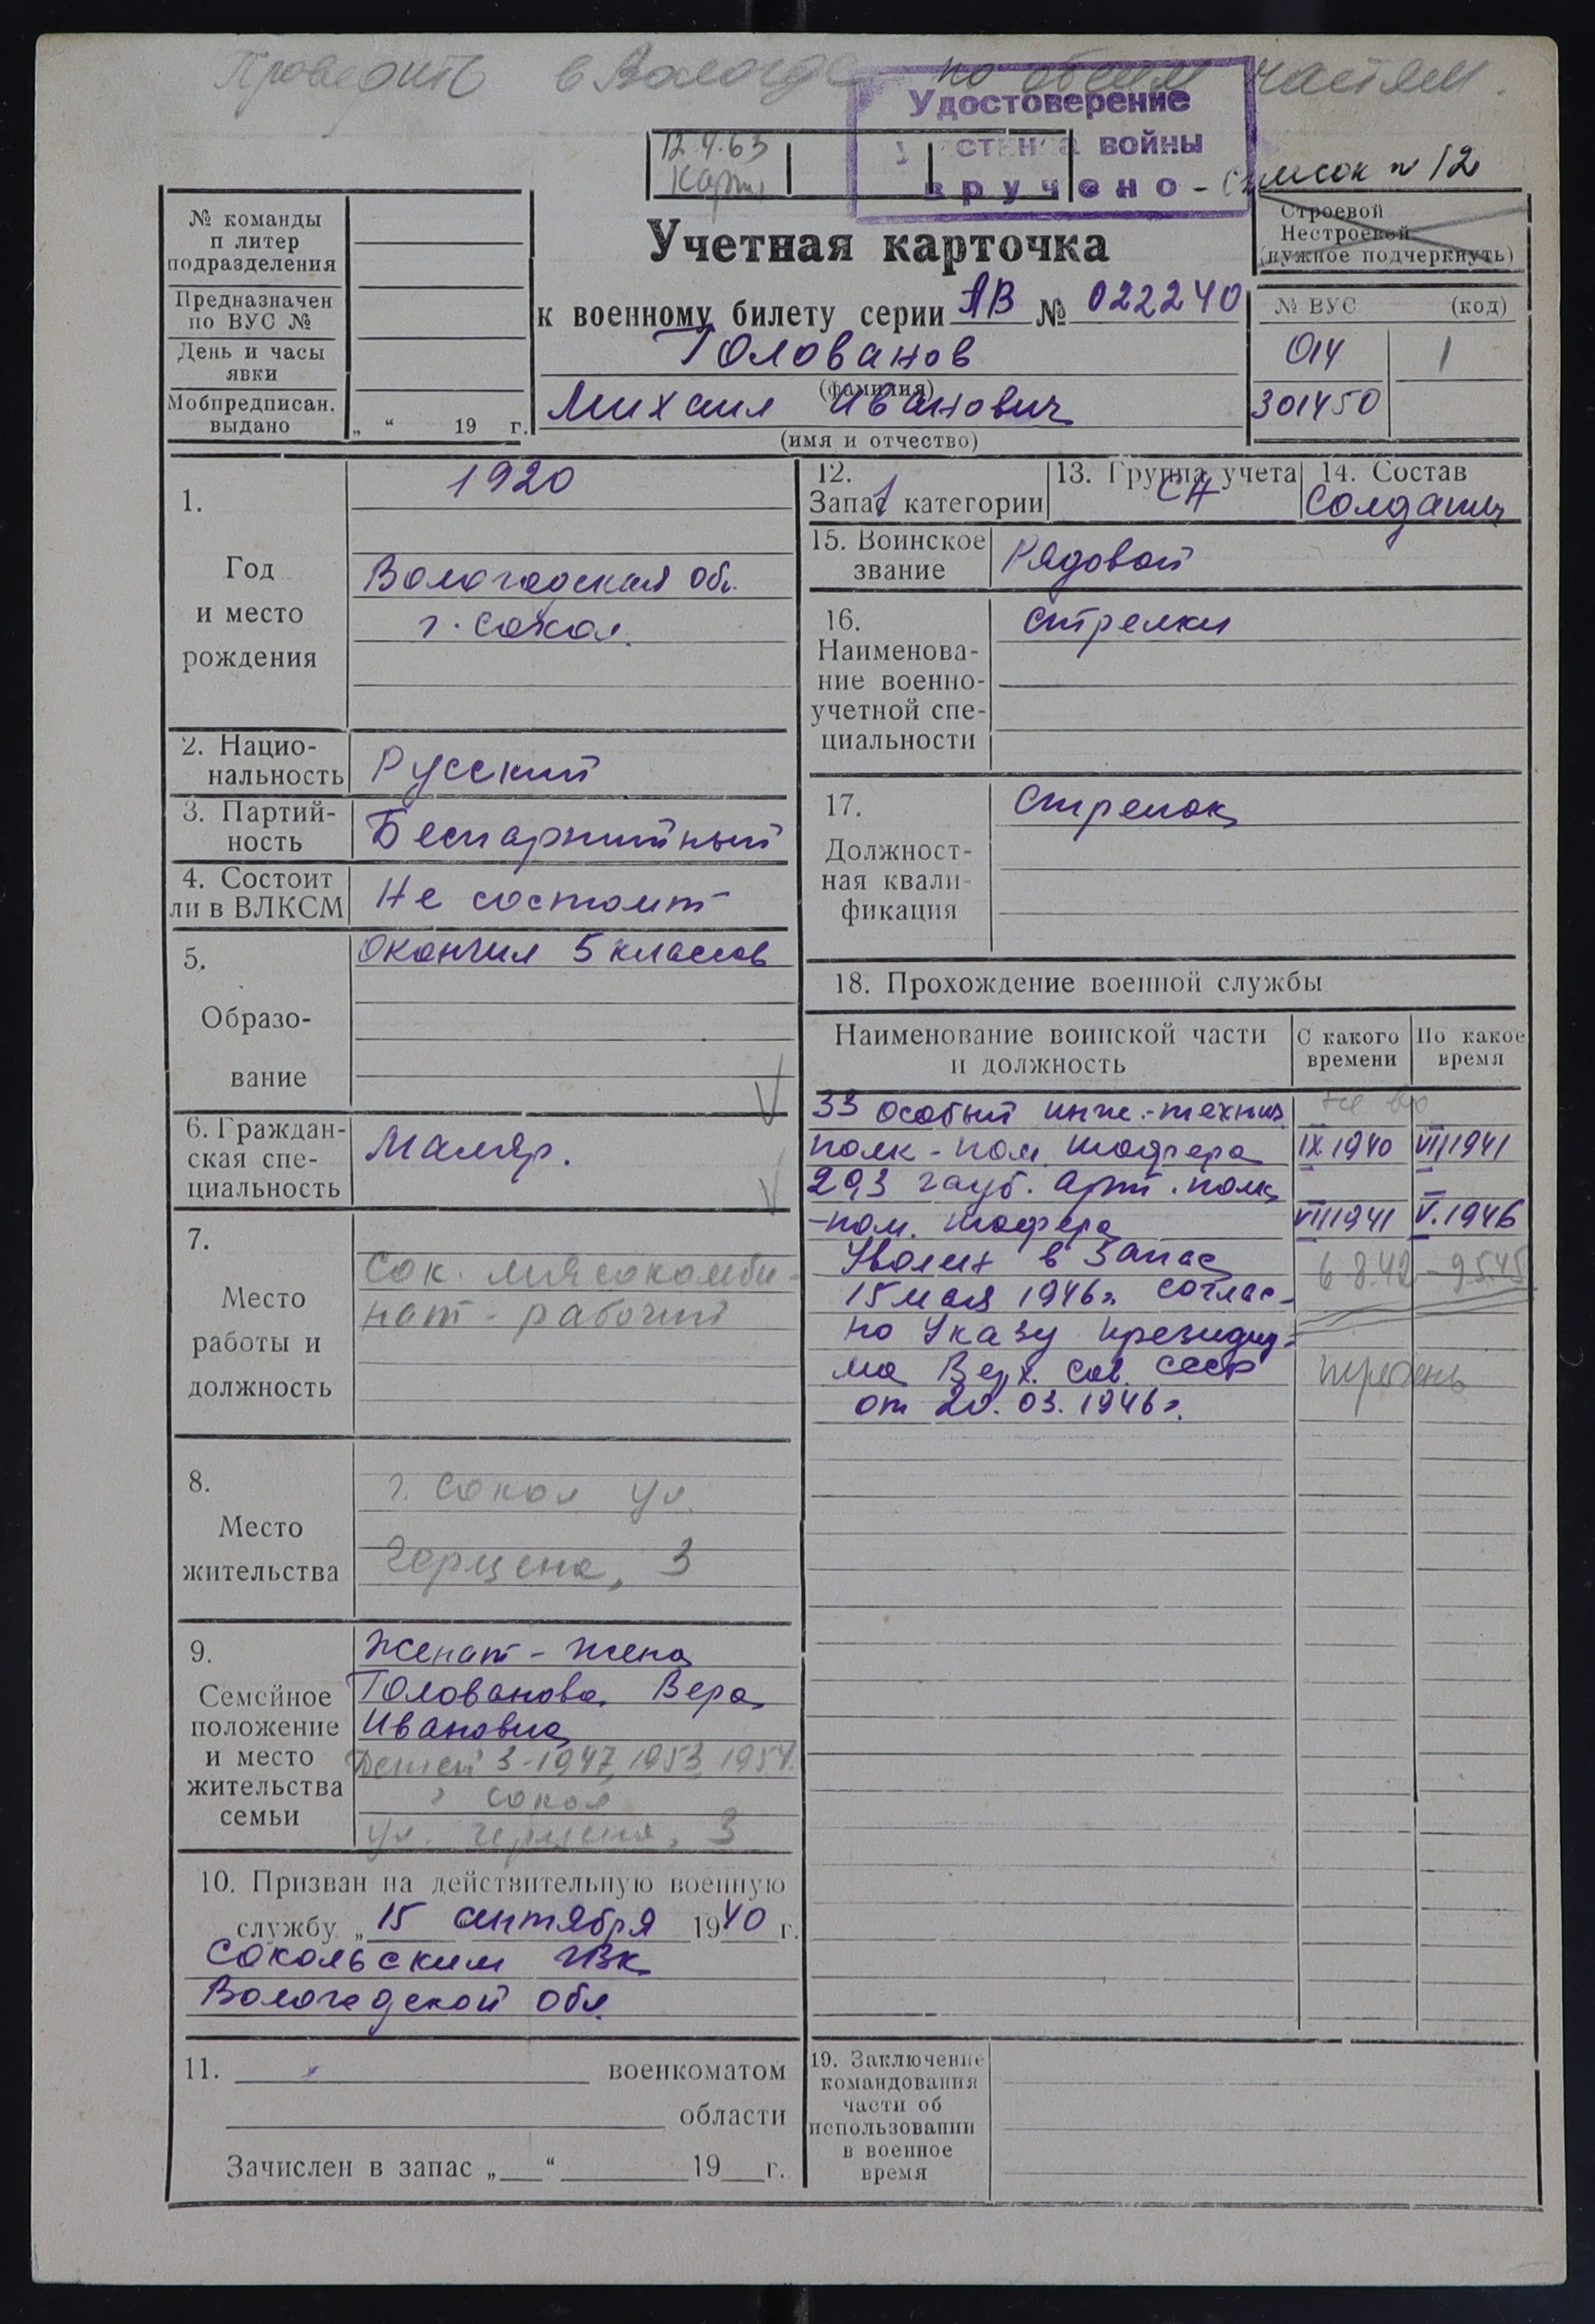 Проверить в Вологде по обеим частям.
Удостоверение
участника войны
вручено - Список № 12
12.4.63
Карт
№ команды
п литер
подразделения
Предназначен
по ВУС №
День и часы
явки
Мобпредписан.
выдано
„ “ 19 г.
Учетная карточка
к военному билету серии АВ № 022240
Голованов
(фамилия)
Михаил Иванович
(имя и отчество)
Строевой
Нестроевой
(нужное подчеркнуть)
№ ВУС (код)
014 1
301450
1.
Год
и место
рождения
1920
Вологодская обл.
г. Сокол.
2. Нацио-
нальность
Русский
3. Партий-
ность
Беспартийный
4. Состоит
ли в ВЛКСМ
Не состоит
5.
Образо-
вание
Окончил 5 классов
6. Граждан-
ская спе-
циальность
Маляр.
7.
Место
работы и
должность
Сок. мясокомби-
нат - рабочий
8.
Место
жительства
г. Сокол ул.
Герцена, 3
9.
Семейное
положение
и место
жительства
семьи
Женат - жена
Голованова Вера
Ивановна
Детей 3-1947, 1953, 1954.
г Сокол
ул. Герцена, 3
10. Призван на действительную военную
службу „15 сентября 1940 г.
Сокольским ГВК
Вологодской обл.
11. военкоматом
области
Зачислен в запас „ “ 19 г.
12.
Запас 1 категории
13. Группа учета
СА
14. Состав
Солдаты
15. Воинское
звание
Рядовой
16.
Наименова-
ние военно-
учетной спе-
циальности
Стрелки
17.
Должност-
ная квали-
фикация
Стрелок
18. Прохождение военной службы
Наименование воинской части
и должность
С какого
времени
По какое
время
33 особый инж.-технич.
не вх
полк - пом. шофера IX 1940 VII 1941
293 гауб. арт. полк
- пом. шофера VII 1941 V. 1946
Уволен в запас
6.8.42 - 9.5.45
15 мая 1946 г. соглас-
но Указу Президиу-
ма Верх. Сов. СССР
перечень
от 20.03.1946 г.
19. Заключение
командования
части об
использовании
в военное
время